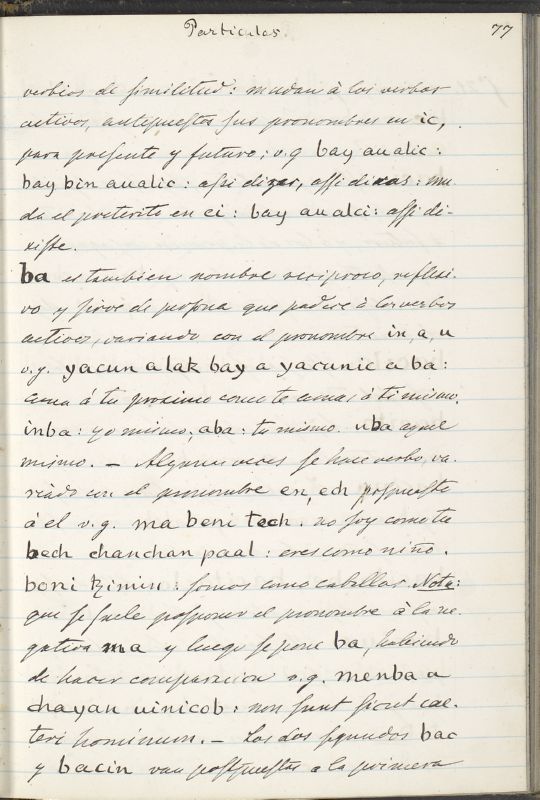 Particulas.
77
verbios de similitud: mudan à los verbos
activos, antepuestos sus pronombres en ic,
para presente y futuro; v.g bay aualic:
bay bin aualic: assi dizes, assi diras: mu-
da el preterito en ci: bay aualci: assi di-
xiste.
ba es tambien nombre reciproco, reflexi-
vo y sirve de persona que padece à los verbos
activos, variando con el pronombre in, a, u
v.g. yacun a lak bay a yacunic a ba:
ama á tu proximo como te amas à ti mismo.
inba: yo mismo; aba: tu mismo. uba aquel
mismo. — Algunas veces se hace verbo, va-
riado con el pronombre en, ech pospuesto
á él v.g. ma beni tech. no soy como tu
bech chanchan paal: eres como niño.
boni tzimin: somos como caballos. Nota:
que se suele posponer el pronombre à la ne-
gativa ma y luego se pone ba, habiendo
de hacer comparacion v.g. menba a
chayan uinicob: non sunt sicut cae-
teri hominum. — Los dos segundos bac
y bacin van pospuestos a la primera